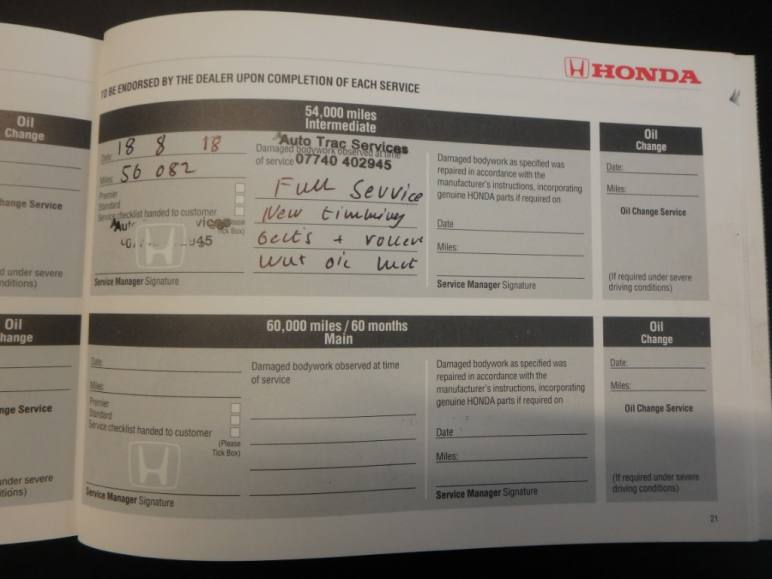 HONDA
TO BE ENDORSED BY THE DEALER UPON COMPLETION OF EACH SERVICE
Oil
Change
hange Service
d under severe
nditions)
54,000 miles
Intermediate
Date: 18 8 18
Miles: 56 082
Premier
Standard
Service checklist handed to customer
(Please
Tick Box)
Service Manager Signature
Auto Trac Services
07740 402945
Damaged bodywork observed at time
of service
Full Service
New timming
belts + roller
oil
Damaged bodywork as specified was
repaired in accordance with the
manufacturer's instructions, incorporating
genuine HONDA parts if required on
Date
Miles:
Service Manager Signature
Oil
Change
Date:
Miles:
Oil Change Service
(If required under severe
driving conditions)
Oil
hange
nge Service
nder severe
itions)
60,000 miles / 60 months
Main
Date:
Miles:
Premier
Standard
Service checklist handed to customer
(Please
Tick Box)
Service Manager Signature
Damaged bodywork observed at time
of service
Damaged bodywork as specified was
repaired in accordance with the
manufacturer's instructions, incorporating
genuine HONDA parts if required on
Date
Miles:
Service Manager Signature
Oil
Change
Date:
Miles:
Oil Change Service
(If required under severe
driving conditions)
21